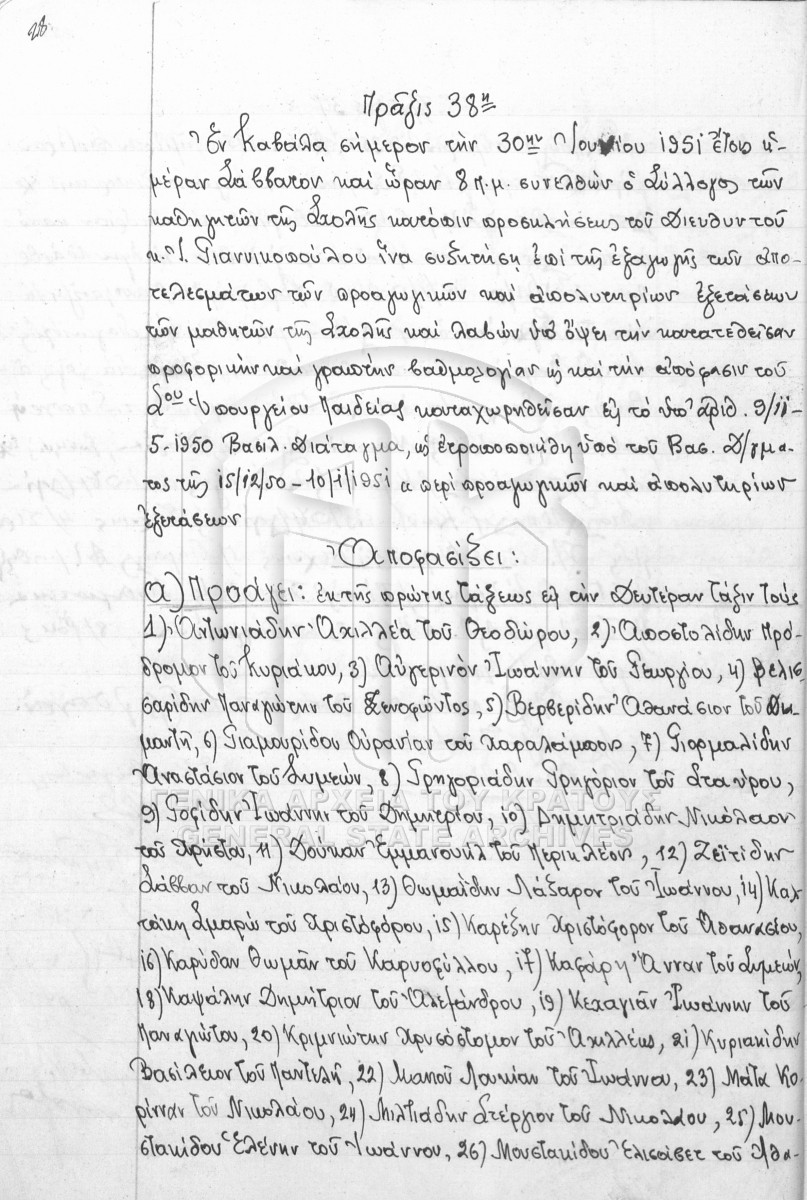 28
Πρᾶξις 38η
Ἐν Καβάλᾳ σήμερον τὴν 30ην Ἰουνίου 1951 ἔτους ἡ-
μέραν Σάββατον καὶ ὥραν 8 π.μ. συνελθὼν ὁ Σύλλογος τῶν
καθηγητῶν τῆς Σχολῆς κατόπιν προσκλήσεως τοῦ Διευθυντοῦ
κ. Ἰ. Γιαννικοπούλου ἵνα συζητήσῃ ἐπὶ τῆς ἐξαγωγῆς τῶν ἀπο-
τελεσμάτων τῶν προαγωγικῶν καὶ ἀπολυτηρίων ἐξετάσεων
τῶν μαθητῶν τῆς Σχολῆς καὶ λαβὼν ὑπ' ὄψει τὴν κατατεθεῖσαν
προφορικὴν καὶ γραπτὴν βαθμολογίαν ὡς καὶ τὴν ἀπόφασιν τοῦ
Σου Ὑπουργείου Παιδείας καταχωρηθεῖσαν εἰς τὸ ὑπ' ἀριθ. 9/11-
5-1950 Βασιλ. Διάταγμα, ὡς ἐτροποποιήθη ὑπὸ τοῦ Βασ. Δ/γμα-
τος τῆς 15/12/50-10/1/1951 περὶ προαγωγικῶν καὶ ἀπολυτηρίων
ἐξετάσεων
Ἀποφασίζει:
α) Προάγει: ἐκ τῆς πρώτης τάξεως εἰς τὴν Δευτέραν τάξιν τοὺς
1) Ἀντωνιάδην Ἀχιλλέα τοῦ Θεοδώρου, 2) Ἀποστολίδην Πρό-
δρομον τοῦ Κυριάκου, 3) Αὐγερινὸν Ἰωάννην τοῦ Γεωργίου, 4) Βελισ-
σαρίδην Παναγιώτην τοῦ Ξενοφῶντος, 5) Βερβερίδην Ἀθανάσιον τοῦ
μαντῆ, 6) Γιαμουρίδου Οὐρανίαν τοῦ Χαραλάμπους, 7) Γιορμαλίδην
Ἀναστάσιον τοῦ Συμεών, 8) Γρηγοριάδην Γρηγόριον τοῦ Σταύρου,
9) Ἰωάννην τοῦ Δημητρίου, 10) Δημητριάδην Νικόλαον
τοῦ Χρήστου, 11) Δούκαν Ἐμμανουὴλ τοῦ Περικλέους, 12) Ζεϊτίδην
Σάββαν τοῦ Νικολάου, 13) Θωμαΐδην Λάζαρον τοῦ Ἰωάννου, 14) Καλ-
τάκη Σμαρὼ τοῦ Χριστοφόρου, 15) Καρέζην Χριστόφορον τοῦ Ἀθανασίου,
16) Καρύδαν Θωμᾶν τοῦ Καρυοφύλλου, 17) Καφάρη Ἄνναν τοῦ Συμεών,
18) Καψάλην Δημήτριον τοῦ Ἀλεξάνδρου, 19) Κεχαγιᾶν Ἰωάννην τοῦ
Παναγιώτου, 20) Κριμνιώτην Χρυσόστομον τοῦ Ἀχιλλέως, 21) Κυριακίδην
Βασίλειον τοῦ Παντελῆ, 22) Μανοῦ Λουκίαν τοῦ Ἰωάννου, 23) Μάτα Κο-
ρίνναν τοῦ Νικολάου, 24) Μιλτιάδην Στέργιον τοῦ Νικολάου, 25) Μου-
στακίδου Ἑλένην τοῦ Ἰωάννου, 26) Μουστακίδου Ἐλισάβετ τοῦ Ἀθα-
ΓΕΝΙΚΑ ΑΡΧΕΙΑ ΤΟΥ ΚΡΑΤΟΥΣ
GENERAL STATE ARCHIVES